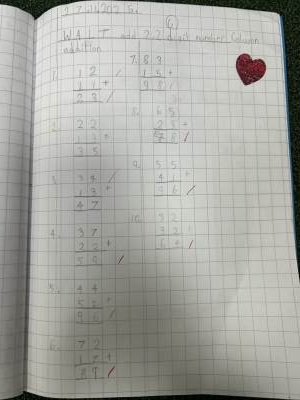 (G)
W A L T add 2 2 digit number Column
addition
1. 1 2
1 1 +
2 3
2. 2 2
1 3 +
3 5
3. 3 4
1 3 +
4 7
4. 3 7
2 2 +
5 9
5. 4 4
5 2 +
9 6
6. 7 2
1 7 +
8 9
7. 8 3
1 5 +
9 8
8.
9. 5 5
4 1 +
10. 3 2
3 2
6 4